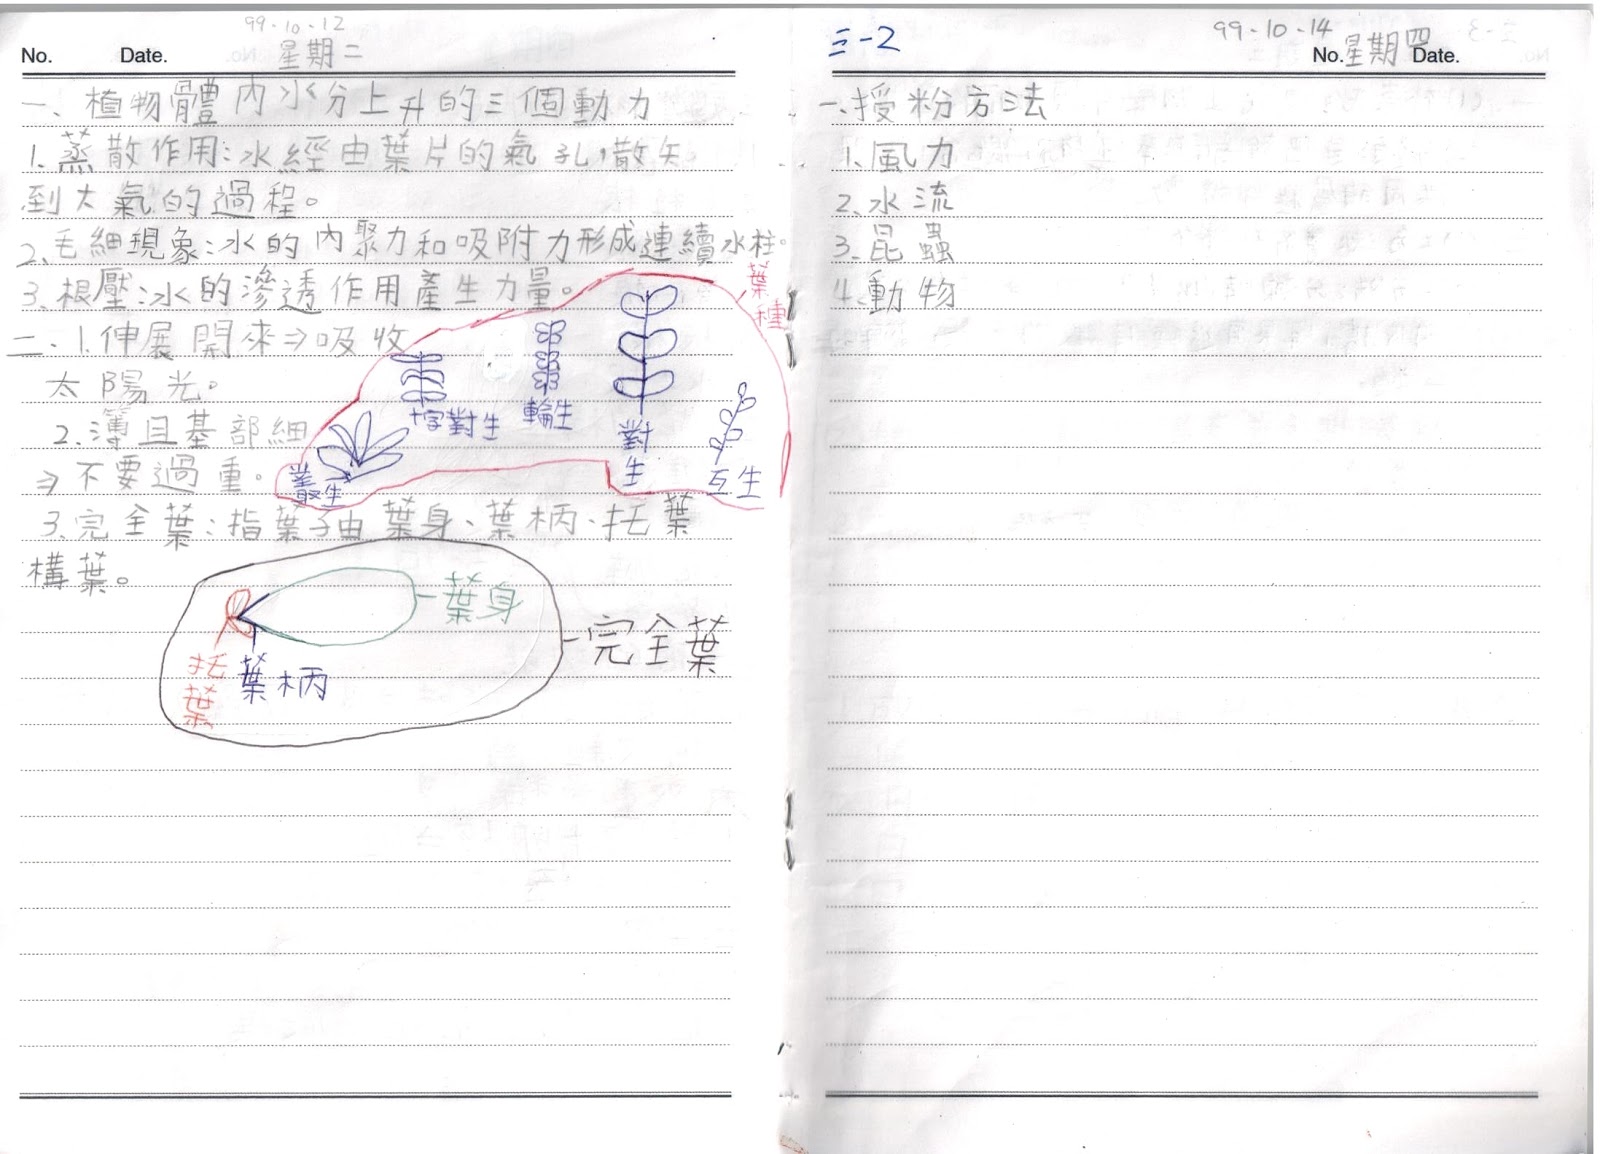 99.10.12
No. Date. 星期二
一、植物體內水分上升的三個動力
1.蒸散作用:水經由葉片的氣孔,散失
到大氣的過程。
2.毛細現象:水的內聚力和吸附力形成連續水柱。
3.根壓:水的滲透作用產生力量。
二、1.伸展開來⇒吸收
太陽光。
2.薄且基部細
⇒不要過重。
葉種
十字對生
輪生
對生
互生
叢生
3.完全葉:指葉子由葉身、葉柄、托葉
構葉。
葉身
完全葉
托葉
葉柄
三-2
99.10.14
No. 星期四 Date.
一、授粉方法
1.風力
2.水流
3.昆蟲
4.動物